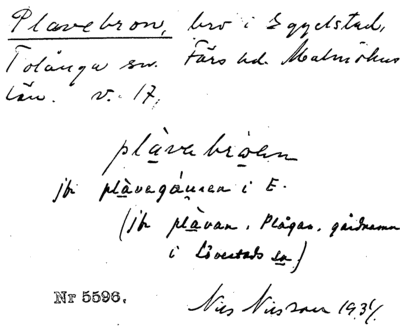 Plavebron, bro i Eggelstad,
Tolånga sn. Färs hd. Malmöhus
län. v. 17.
plavebroen
jfr plavegåusen i E.
(jfr plavan, Plågas, gårdnamn
i Lövestads sn)
Nr 5596.
Nils Nilsson 1931.